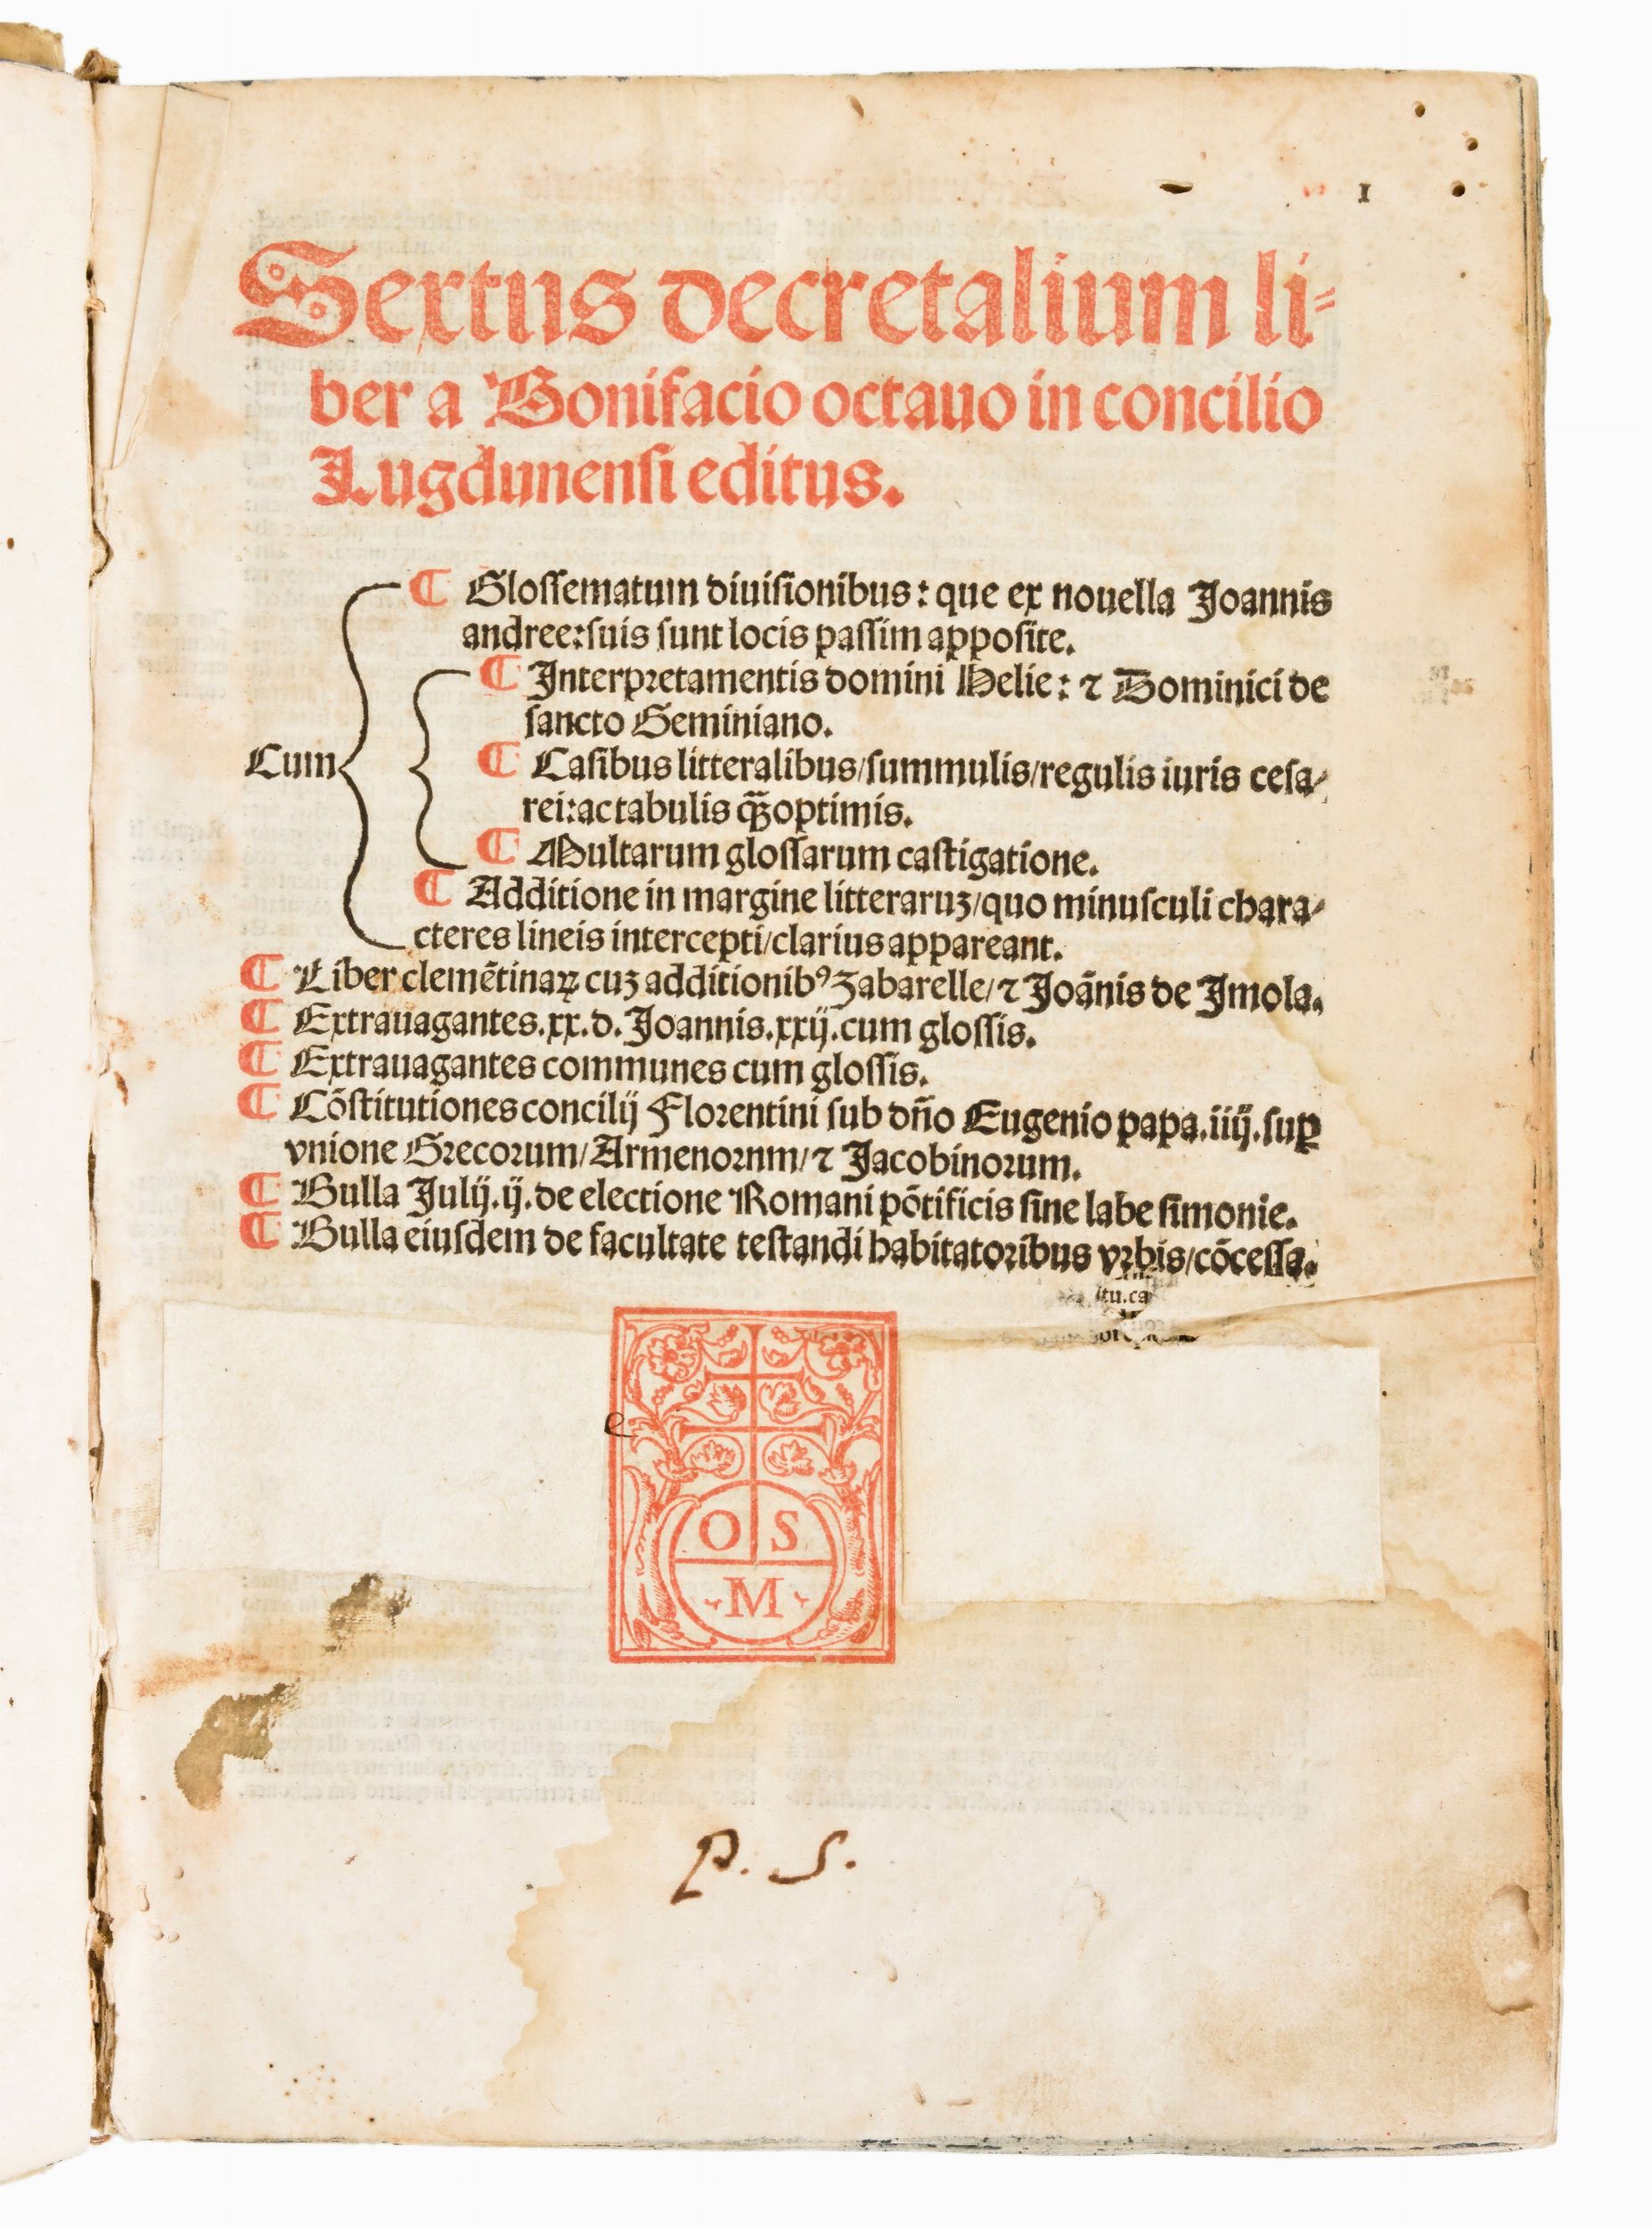 1
Sextus decretalium li⸗
ber a Bonifacio octauo in concilio
Lugdunensi editus.
¶ Glossematum diuisionibus: que ex nouella Joannis
andree: suis sunt locis passim apposite.
¶ Interpretamentis domini Helie: ⁊ Dominici de
sancto Geminiano.
Cum
¶ Casibus litteralibus/summulis/regulis iuris cesa⸗
rei: ac tabulis q̃ꝫ optimis.
¶ Multarum glossarum castigatione.
¶ Additione in margine litteraruꝫ/quo minusculi chara⸗
cteres lineis intercepti/clarius appareant.
¶ Liber clemẽtinaꝝ cuꝫ additionibꝰ Zabarelle/⁊ Joãnis de Jmola.
¶ Extrauagantes.xx.d. Joannis.xxij.cum glossis.
¶ Extrauagantes communes cum glossis.
¶ Cõstitutiones concilij Florentini sub dño Eugenio papa.iiij.suꝑ
vnione Grecorum/Armenornm/⁊ Jacobinorum.
¶ Bulla Julij.ij.de electione Romani põtificis sine labe simonie.
¶ Bulla eiusdem de facultate testandi habitatoribus vrbis/cõcessa.
itu.ca
e
O S
M
P. S.